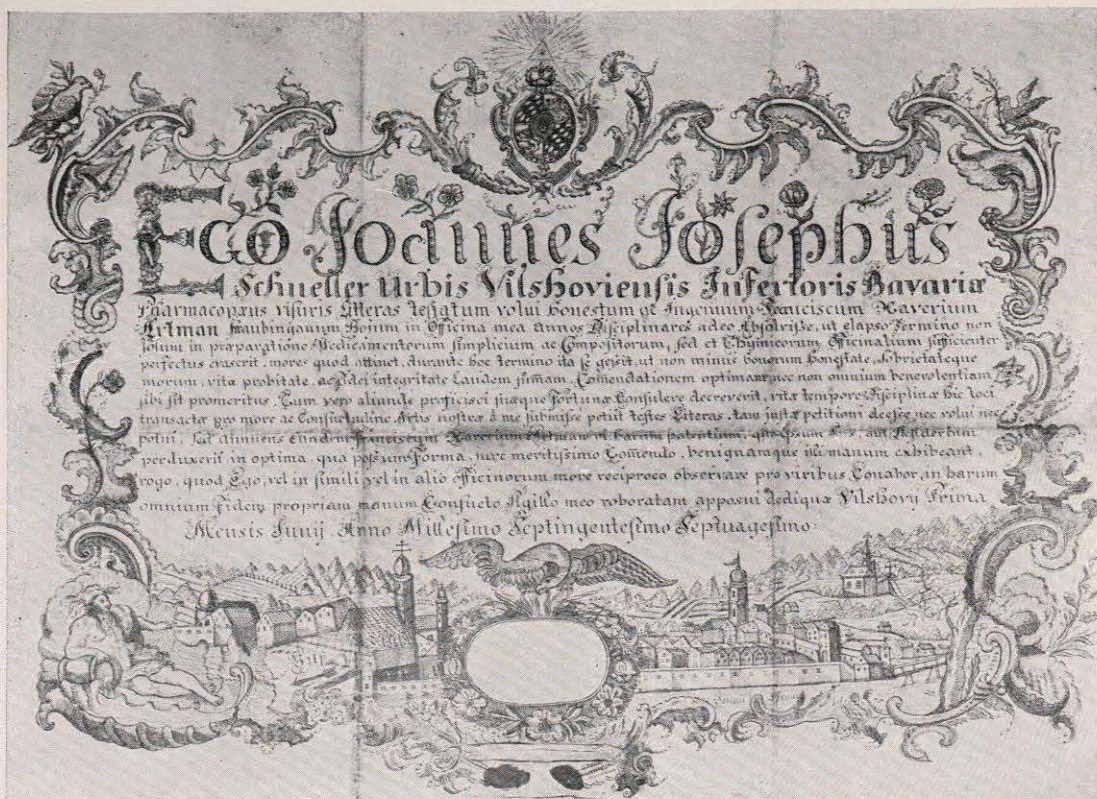 Ego Joannes Josephus
Schneller Urbis Vilshoviensis Inferioris Bavariæ
Pharmacopæus visuris Litteras testatum volui honestum ac Ingenuum Franciscum Xaverium
Ertman Straubinganum Bojum in Officina mea annos Disciplinares adeo Absolvisse, ut elapso Termino non
solum in præparatione Medicamentorum simplicium ac Compositorum, sed et Chymicorum Officinalium sufficienter
perfectus evaserit, mores quod attinet, durante hoc termino ita se gessit, ut non minus bonorum honestate, sobrietateque
morum, vitæ probitate, ac Fidei integritate Laudem summam, Comendationem optimam nec non omnium benevolentiam
sibi sit promeritus. Cum vero aliunde proficisci suæque fortunæ Consulere decreverit, vitæ tempore Disciplinæ hic loci
transactæ pro more ac Consuetudine Artis nostræ à me submisse petiit testes Literas, tam justæ petitioni deesse nec volui nec
potui, sed annuens Eundem Franciscum Xaverium Ertman vi harum patentium, qui ipsum
perduxerit in optima, qua possum Forma, jure meritissimo Comendo, benignamque illi manum exhibeant,
rogo, quod Ego, vel in simili vel in alio officiorum more reciproco observare pro viribus Conabor, in harum
omnium Fidem propriam manum Consueto Sigillo meo roboratam apposui dedique Vilshovij Prima
Mensis Junij Anno Millesimo Septingentesimo Septuagesimo:
Vilz